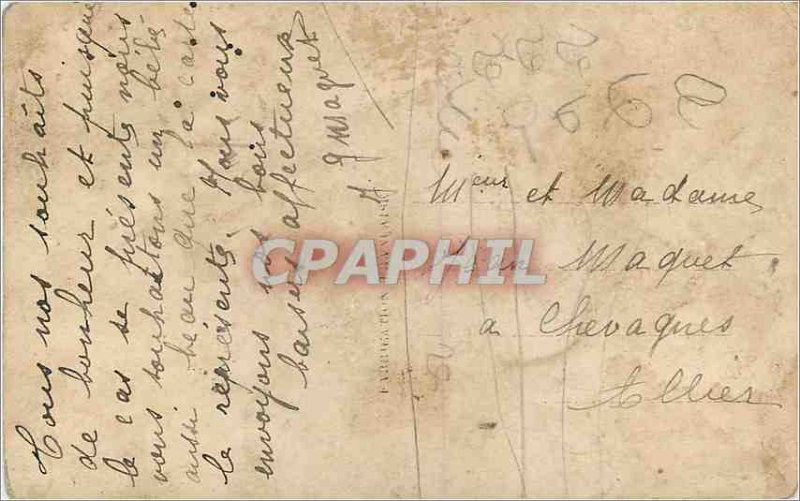 Tous nos souhaits
de bonheur et puisque
le cas se présente nous
vous souhaitons un bébé
aussi beau que la carte
le représente. Nous vous
envoyons nos bons
baisers affectueux
Maquet
FABRICATION
Mr et Madame
Jean Maquet
a Chevagnes
Allier
CPAPHIL